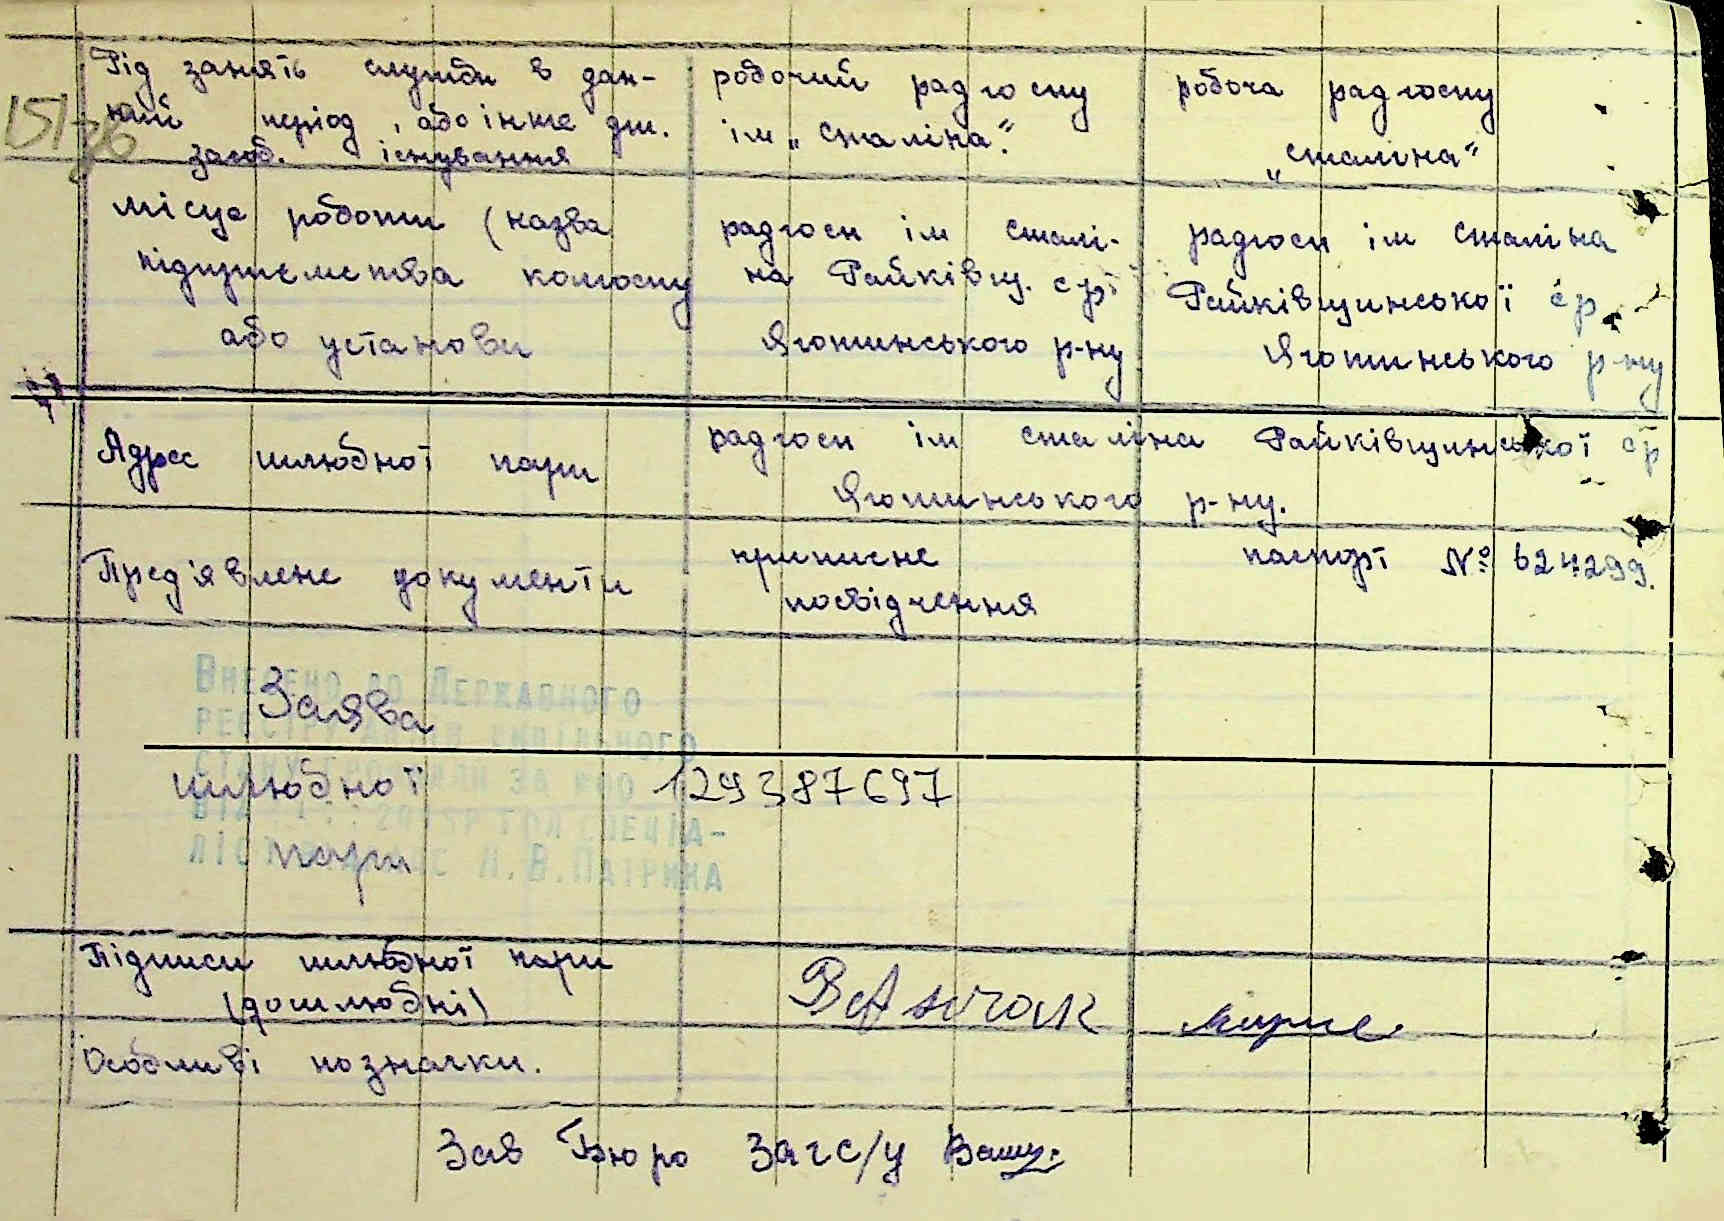 Рід занять служби в дан-
ний період, або інше дж.
засоб. існування
робочий радгоспу
ім „Сталіна".
робоча радгоспу
„Сталіна"
151
місце роботи (назва
підприємства колгоспу
або установи
радгосп ім Сталі-
на Райківщ. с/р
Яготинського р-ну
радгосп ім Сталіна
Райківщинської с/р
Яготинського р-ну
Адрес шлюбної пари
радгосп ім Сталіна Райківщинської с/р
Яготинського р-ну.
Пред'явлене документи
приписне
посвідчення
паспорт № 624299.
Внесено до Державного
реєстру актів цивільного
стану громадян за №00
спеціа-
ліс Н.В.Патрика
Заява
шлюбної
пари
129387697
Підписи шлюбної пари
(дошлюбні)
Особливі позначки.
Зав Бюро Загс/у